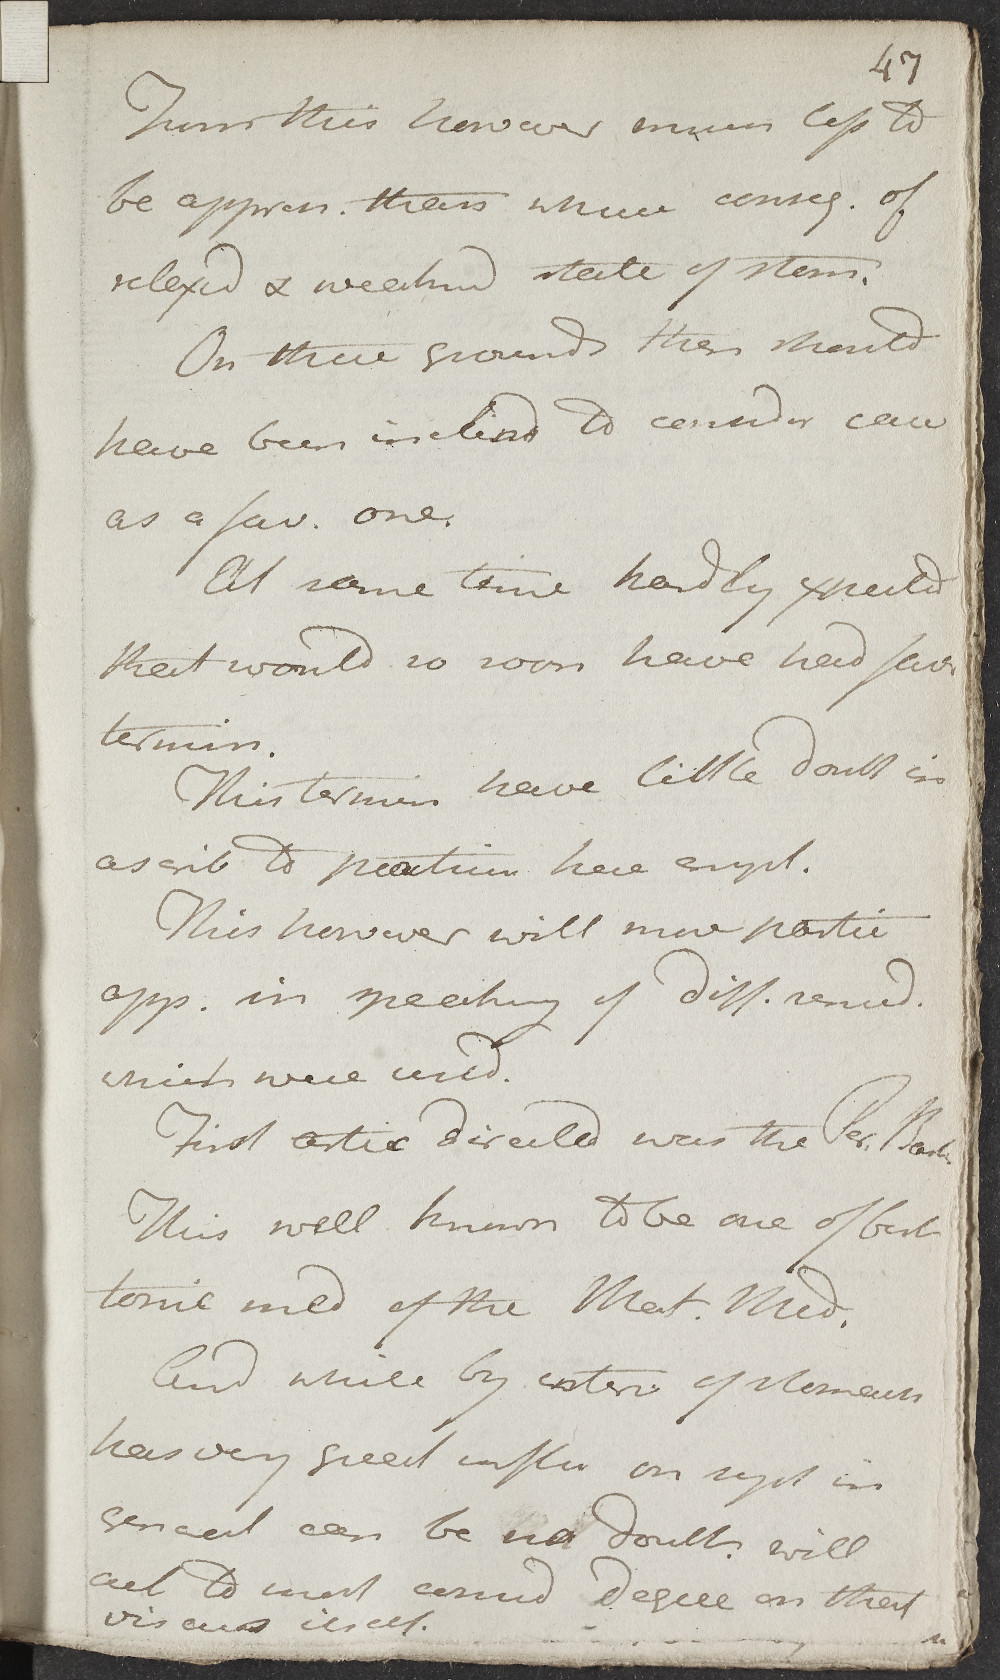 47
From this however much less to
be appreh. than where conseq. of
relaxd & weakend state of stom.
On these grounds then should
have been inclind to consider case
as a fav. one.
At same time hardly expectd
that would so soon have had fav
termin.
This termin have little doubt in
ascrib to practice here empl.
This however will more partic
app. in speaking of diff. remed.
which were used.
First artic directed was the Per. Bark
This well known to be one of best
tonic med of the Mat. Med.
And while by action of stomach
has very great influ on syst in
general can be no doubt will
act to most consid degree on that
viscus itself.